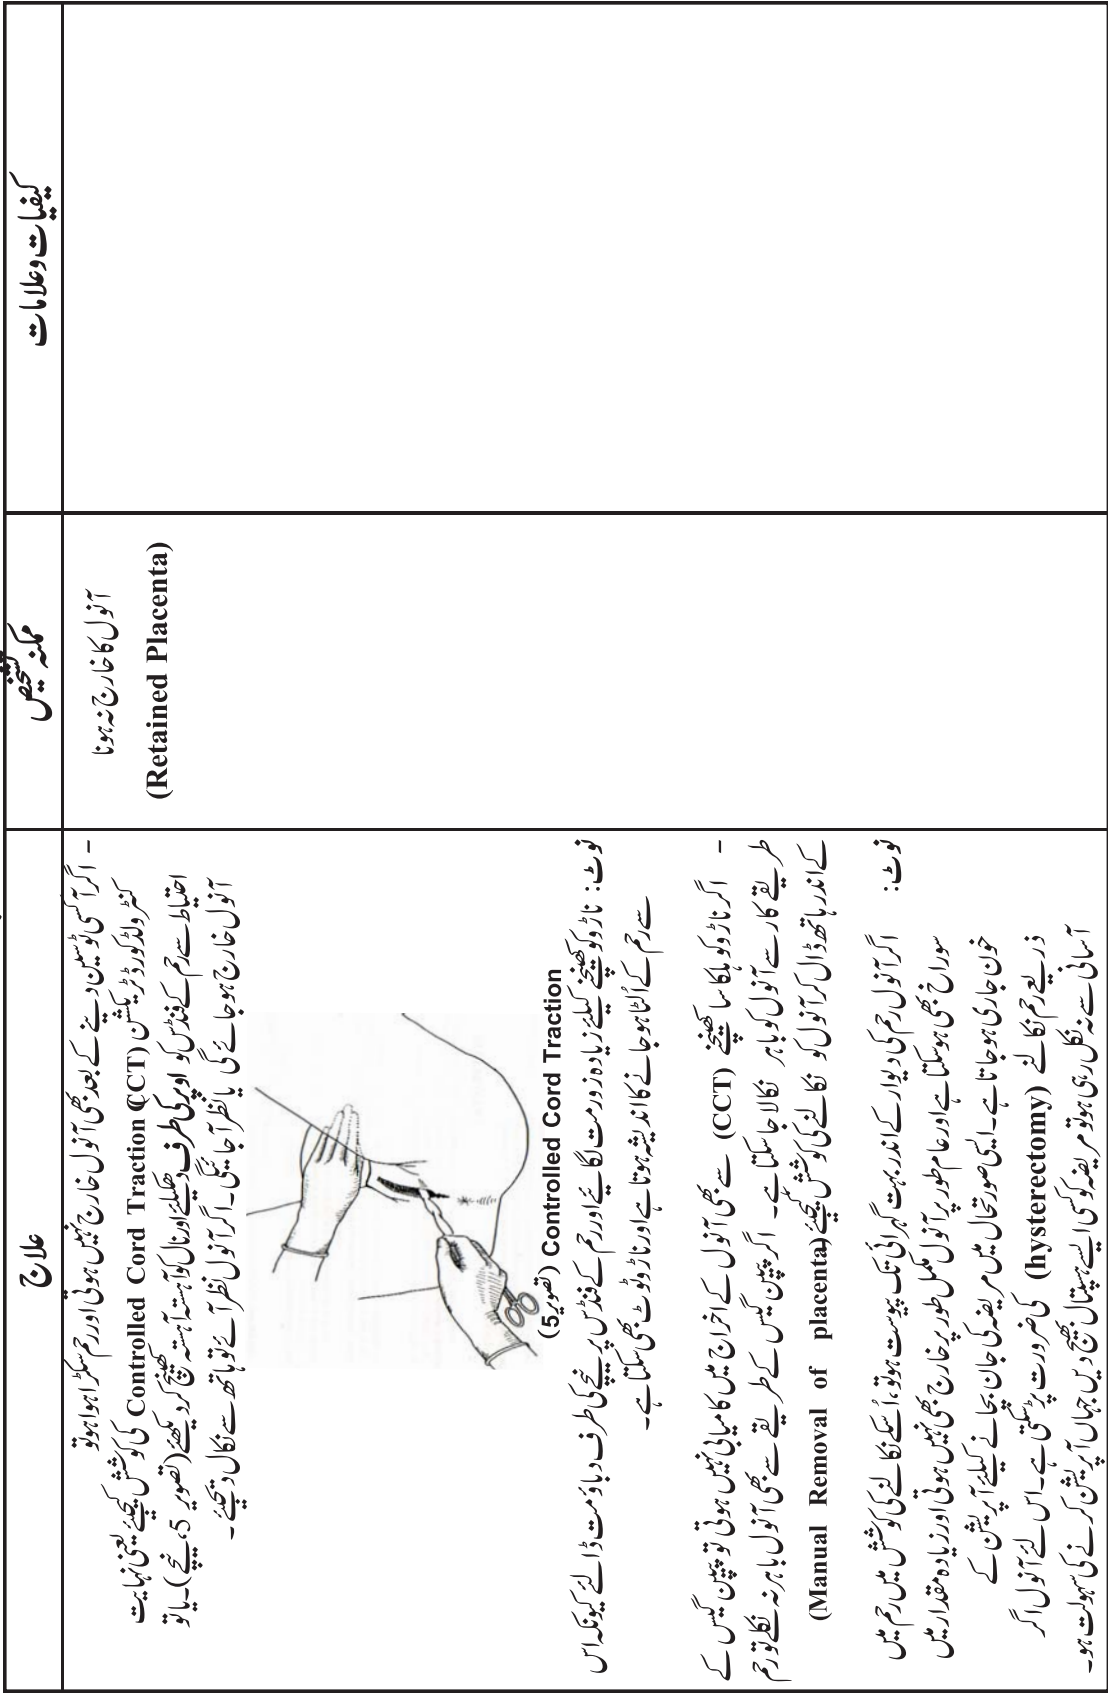 کیفیات و علامات
ممکنہ تشخیص
علاج
آنول کا خارج نہ ہونا
(Retained Placenta)
- اگر آکسی ٹوسین دینے کے بعد بھی آنول خارج نہیں ہوتی اور رحم سکڑا ہوا ہو تو
کنٹرولڈ کورڈ ٹریکشن Controlled Cord Traction (CCT) کی کوشش کیجئے یعنی نہایت
احتیاط سے رحم کے فنڈس کو اوپر کی طرف دھکیلئے اور نال کو آہستہ آہستہ کھینچ کر دیکھئے (تصویر 5، نیچے)۔ یا تو
آنول خارج ہو جائے گی یا نظر آ جائیگی۔ اگر آنول نظر آئے تو ہاتھ سے نکال دیجئے۔
(تصویر 5) Controlled Cord Traction
نوٹ: ناڑو کو کھینچنے کیلئے زیادہ زور مت لگائیے اور رحم کے فنڈس پر نیچے کی طرف دباؤ مت ڈالئے کیونکہ اس
سے رحم کے اُلٹا ہو جانے کا اندیشہ ہوتا ہے اور ناڑو ٹوٹ بھی سکتا ہے۔
- اگر ناڑو کو ہلکا سا کھینچنے (CCT) سے بھی آنول کے اخراج میں کامیابی نہیں ہوتی تو پیپن گیس کے
طریقے کار سے آنول کو باہر نکالا جا سکتا ہے۔ اگر پیپن گیس کے طریقے سے بھی آنول باہر نہ نکلے تو رحم
کے اندر ہاتھ ڈال کر آنول کو نکالنے کی کوشش کیجئے (Manual Removal of placenta)
نوٹ: اگر آنول رحم کی دیوار کے اندر بہت گہرائی تک پیوست ہو تو، اُسکے نکالنے کی کوشش میں رحم میں
سوراخ بھی ہو سکتا ہے اور عام طور پر آنول مکمل طور پر خارج بھی نہیں ہوتی اور زیادہ مقدار میں
خون جاری ہو جاتا ہے۔ ایسی صورتحال میں مریضہ کی جان بچانے کیلئے آپریشن کے
ذریعے رحم نکالنے (hysterectomy) کی ضرورت پڑ سکتی ہے۔ اس لئے آنول اگر
آسانی سے نہ نکل رہی ہو تو مریضہ کو کسی ایسے ہسپتال بھیج دیں جہاں آپریشن کرنے کی سہولت ہو۔